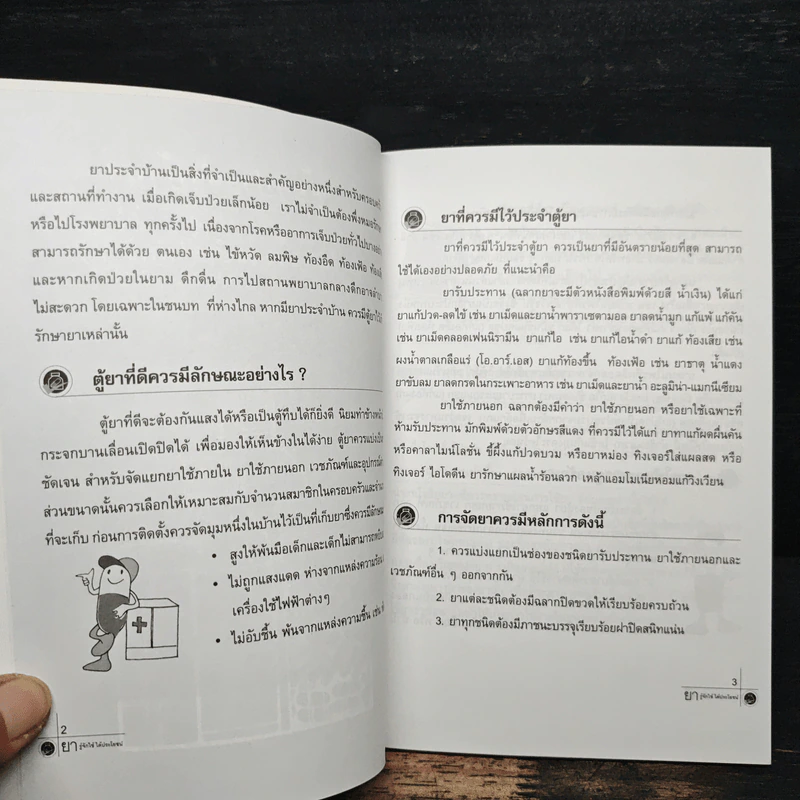 ยาประจำบ้านเป็นสิ่งที่จำเป็นและสำคัญอย่างหนึ่งสำหรับครอบครัว
และสถานที่ทำงาน เมื่อเกิดเจ็บป่วยเล็กน้อย เราไม่จำเป็นต้องพึ่งหมอรักษา
หรือไปโรงพยาบาล ทุกครั้งไป เนื่องจากโรคหรืออาการเจ็บป่วยทั่วไปบาง
สามารถรักษาได้ด้วย ตนเอง เช่น ไข้หวัด ลมพิษ ท้องอืด ท้องเฟ้อ
และหากเกิดป่วยในยาม ดึกดื่น การไปสถานพยาบาลกลางดึกอาจ
ไม่สะดวก โดยเฉพาะในชนบท ที่ห่างไกล หากมียาประจำบ้าน ควรมีตู้ยาไว้
รักษายาเหล่านั้น
ตู้ยาที่ดีควรมีลักษณะอย่างไร ?
ตู้ยาที่ดีจะต้องกันแสงได้หรือเป็นตู้ทึบได้ก็ยิ่งดี นิยมทำข้าง
กระจกบานเลื่อนเปิดปิดได้ เพื่อมองให้เห็นข้างในได้ง่าย ตู้ยาควรแบ่ง
ชัดเจน สำหรับจัดแยกยาใช้ภายใน ยาใช้ภายนอก เวชภัณฑ์และอุปกรณ์
ส่วนขนาดนั้นควรเลือกให้เหมาะสมกับจำนวนสมาชิกในครอบครัวและ
ที่จะเก็บ ก่อนการติดตั้งควรจัดมุมหนึ่งในบ้านไว้เป็นที่เก็บยาซึ่งควรมีลักษณะ
• สูงให้พ้นมือเด็กและเด็กไม่สามารถ
• ไม่ถูกแสงแดด ห่างจากแหล่งความร้อน
เครื่องใช้ไฟฟ้าต่างๆ
• ไม่อับชื้น พ้นจากแหล่งความชื้น เช่น
2
ยา รู้จักใช้ ได้ประโยชน์
ยาที่ควรมีไว้ประจำตู้ยา
ยาที่ควรมีไว้ประจำตู้ยา ควรเป็นยาที่มีอันตรายน้อยที่สุด สามารถ
ใช้ได้เองอย่างปลอดภัย ที่แนะนำคือ
ยารับประทาน (ฉลากยาจะมีตัวหนังสือพิมพ์ด้วยสี น้ำเงิน) ได้แก่
ยาแก้ปวด-ลดไข้ เช่น ยาเม็ดและยาน้ำพาราเซตามอล ยาลดน้ำมูก แก้แพ้ แก้คัน
เช่น ยาเม็ดคลอดเฟนนิรามีน ยาแก้ไอ เช่น ยาแก้ไอน้ำดำ ยาแก้ ท้องเสีย เช่น
ผงน้ำตาลเกลือแร่ (โอ.อาร์.เอส) ยาแก้ท้องขึ้น ท้องเฟ้อ เช่น ยาธาตุ น้ำแดง
ยาขับลม ยาลดกรดในกระเพาะอาหาร เช่น ยาเม็ดและยาน้ำ อะลูมิน่า-แมกนีเซียม
ยาใช้ภายนอก ฉลากต้องมีคำว่า ยาใช้ภายนอก หรือยาใช้เฉพาะที่
ห้ามรับประทาน มักพิมพ์ด้วยตัวอักษรสีแดง ที่ควรมีไว้ได้แก่ ยาทาแก้ผดผื่นคัน
หรือคาลาไมน์โลชั่น ขี้ผึ้งแก้ปวดบวม หรือยาหม่อง ทิงเจอร์ใส่แผลสด หรือ
ทิงเจอร์ ไอโดดีน ยารักษาแผลน้ำร้อนลวก เหล้าแอมโมเนียหอมแก้วิงเวียน
การจัดยาควรมีหลักการดังนี้
1. ควรแบ่งแยกเป็นช่องของชนิดยารับประทาน ยาใช้ภายนอกและ
เวชภัณฑ์อื่น ๆ ออกจากกัน
2. ยาแต่ละชนิดต้องมีฉลากปิดขวดให้เรียบร้อยครบถ้วน
3. ยาทุกชนิดต้องมีภาชนะบรรจุเรียบร้อยฝาปิดสนิทแน่น
3
ยา รู้จักใช้ ได้ประโยชน์